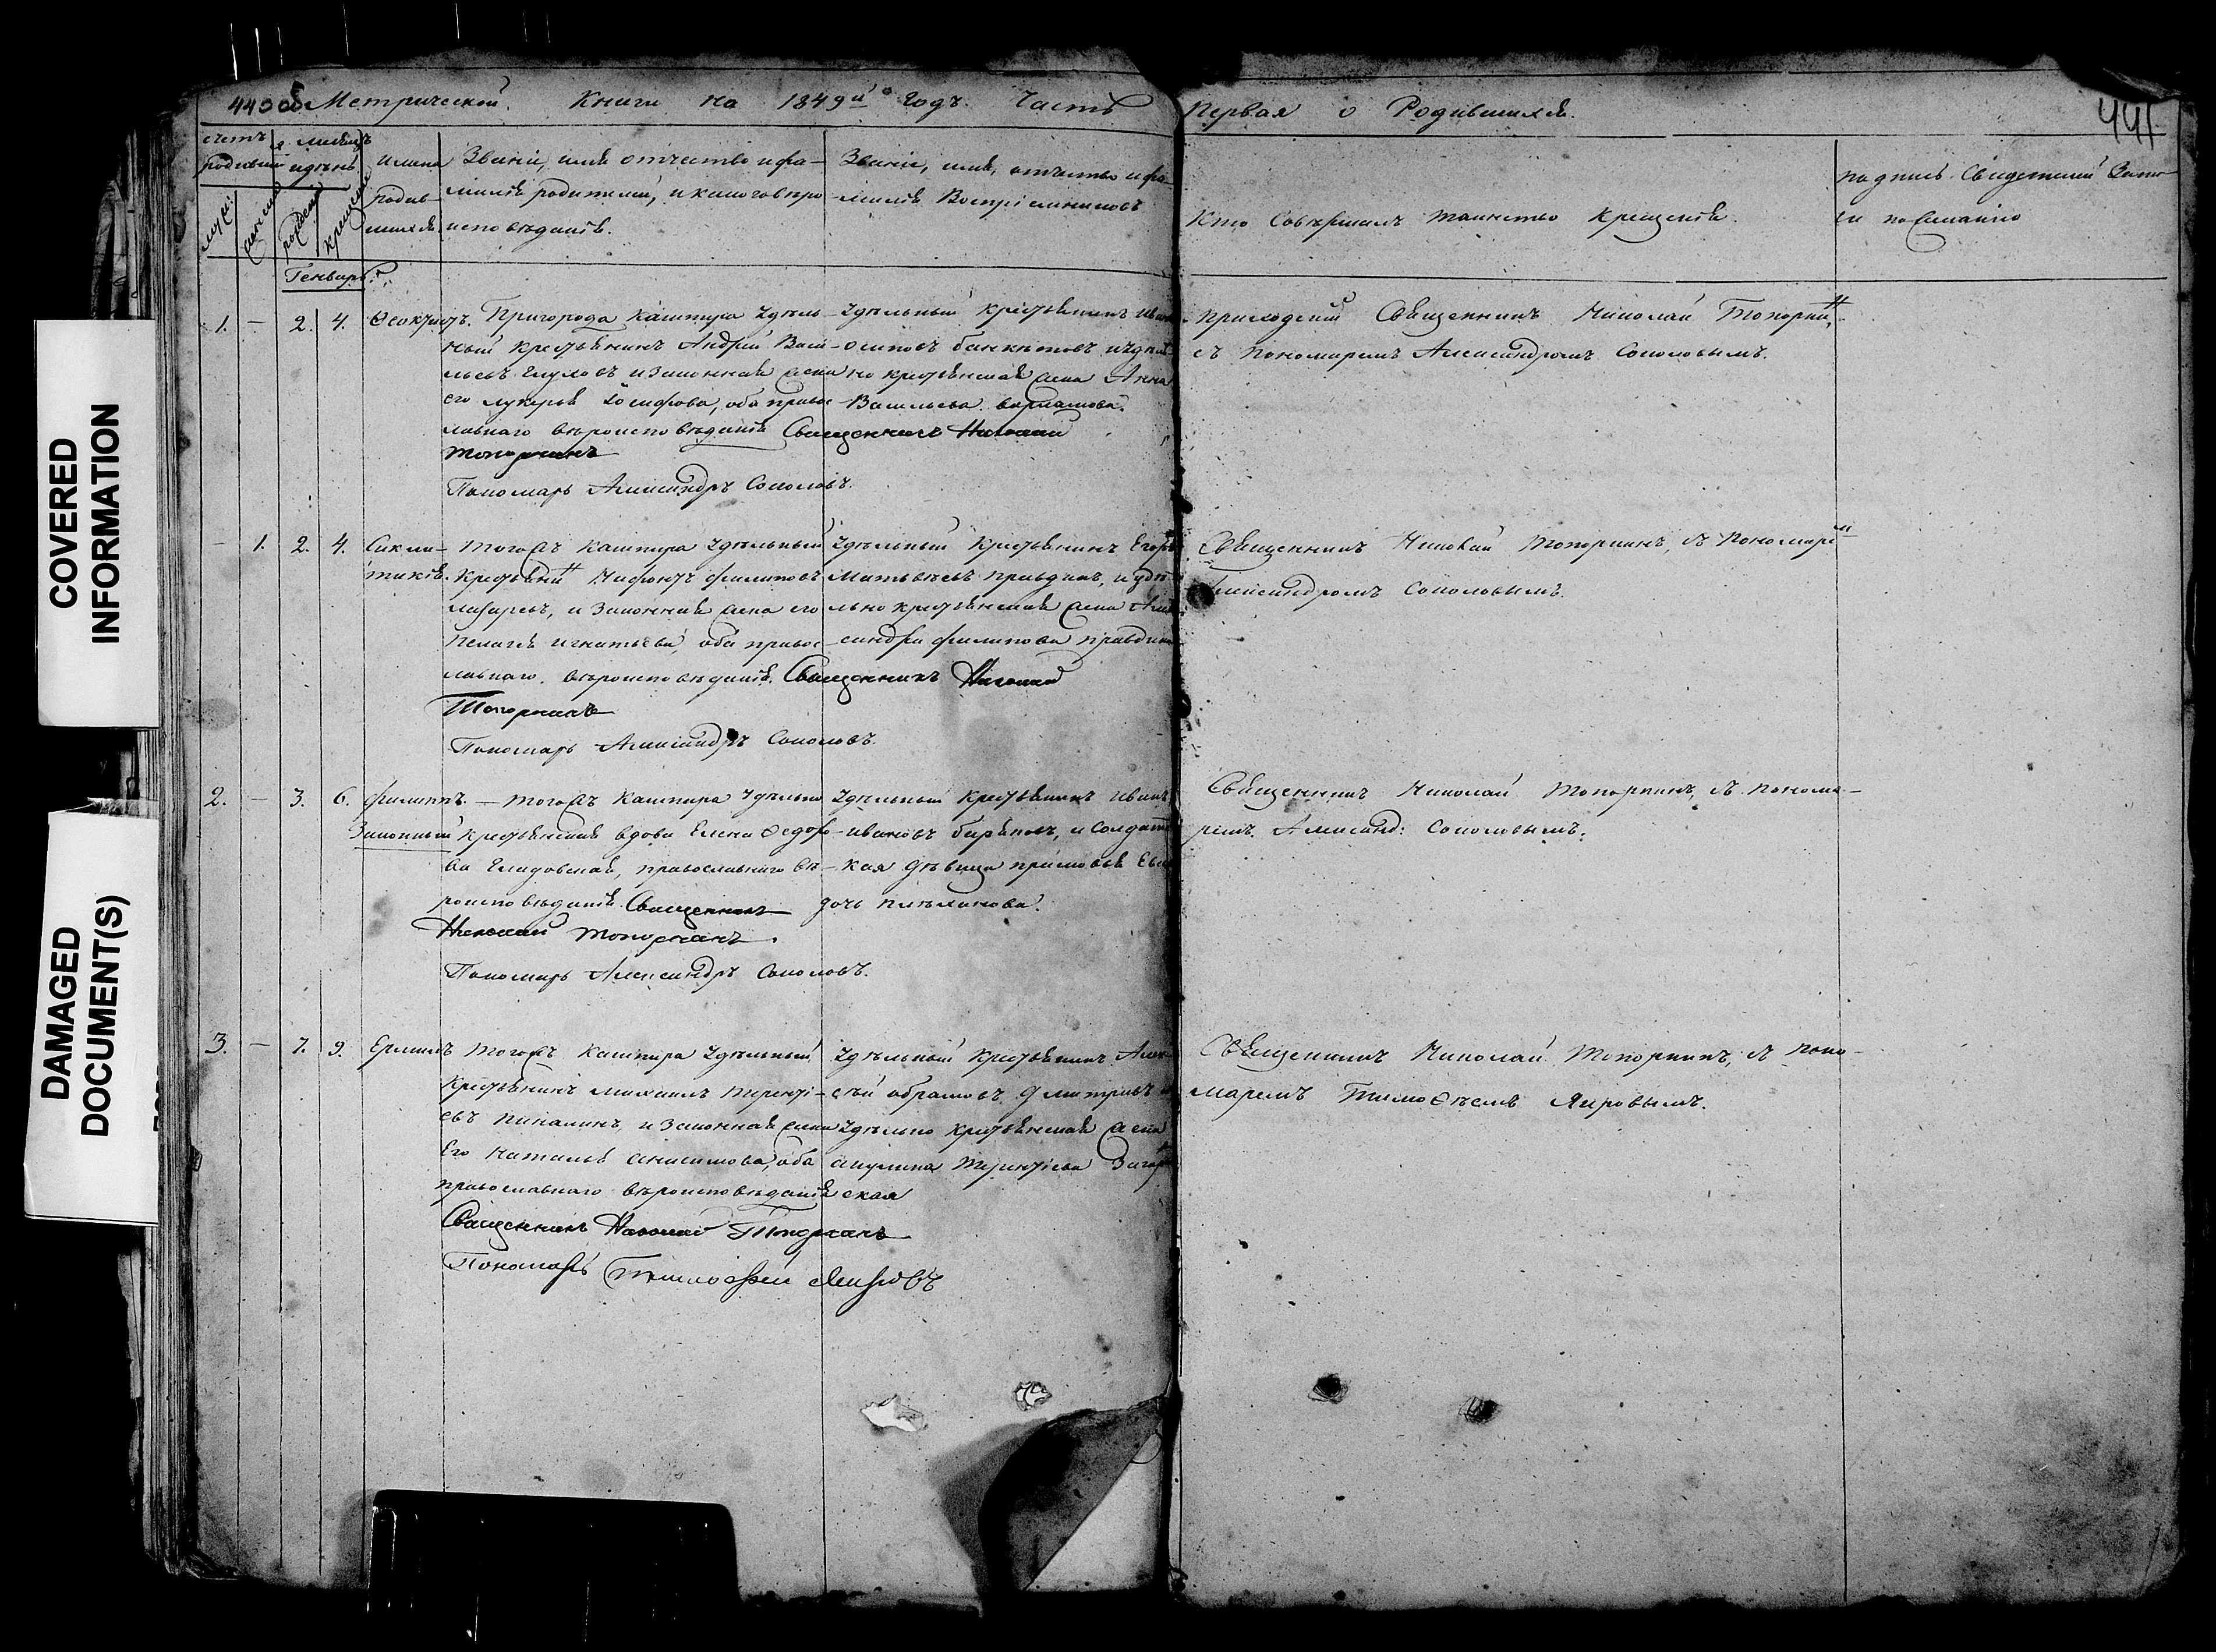 COVERED
INFORMATION
DAMAGED
DOCUMENT(S)
440 об Метрической Книги на 1849й Годъ Часть
Первая о Родившихся.
441
счетъ
родивш
месяцъ
и день
муж:
женска
рожден
крещения
имена
родив-
шихся.
Званіе, имя отчество и фа-
милія родителей, и какого веро-
исповѣданія.
Званіе, имя, отчество и фа-
милія Воспріемниковъ
Кто Совершалъ таинство Крещенія.
подпись Свидетелей Запи
си по Желанію
Генварь.
1. — 2. 4. Ѳеоктистъ. Пригорода Кашпира Удѣль-
ный крестьянинъ Андрей Васи-
льевъ и законная жена
его лукерья Іосифова, оба право-
славнаго вѣроисповѣданія Священникъ Николай
Топорнинъ
Пономарь Александръ Соколовъ.
Удѣльный Крестьянинъ Иван
Осиповъ и удѣль
но крестьянская жена Анна
Васильева варламова.
Приходский Священникъ Николай Топорнин,
съ пономаремъ Александромъ Соколовымъ.
— 1. 2. 4. Сикли-
тикія. Тогожъ Кашпира Удѣльный
Крестьянин Нифонтъ филиповъ
лазаревъ, и законная жена его
Пелагея игнатьева, оба право-
славнаго. вѣроисповѣданія. Священникъ Николай
Топорнинъ
Пономарь Александръ Соколовъ.
Удѣльный Крестьянинъ Егоръ
Матвѣевъ правдинъ, и удѣ-
льно крестьянская жена Алек
сандра филипова правдина
Священникъ Николай Топорнинъ, съ Пономарем
Александромъ Соколовымъ.
2. — 3. 6. филиппъ. — Тогожъ Кашпира Удѣльно
Законный крестьянская вдова Елена Ѳедоро-
ва православнаго вѣ-
роисповѣданія. Священникъ
Николай Топорнинъ.
Пономарь Александръ Соколовъ.
Удѣльный Крестьянинъ Иванъ
ивановъ и Солдатс
кая дѣвица
дочь
Священникъ Николай Топорнинъ, съ понома-
ремъ. Александ: Соколовымъ.
3. — 7. 9. Ермилъ Тогожъ Кашпира Удѣльный,
Крестьянинъ Михаилъ Терентi-
евъ пикалинъ, и законная жена
Его Наталья анисимова, оба
православнаго вѣроисповѣданія
Священникъ Николай Топорнинъ
Пономарь Тимофей Яировъ
Удѣльный Крестьянинъ Алек-
сѣй абрамовъ Дмитриевъ и
Удѣльно Крестьянская жена
акулина Терентіева Загор
ская
Священникъ Николай Топорнинъ, съ поно-
маремъ Тимоѳеемъ Яировымъ.